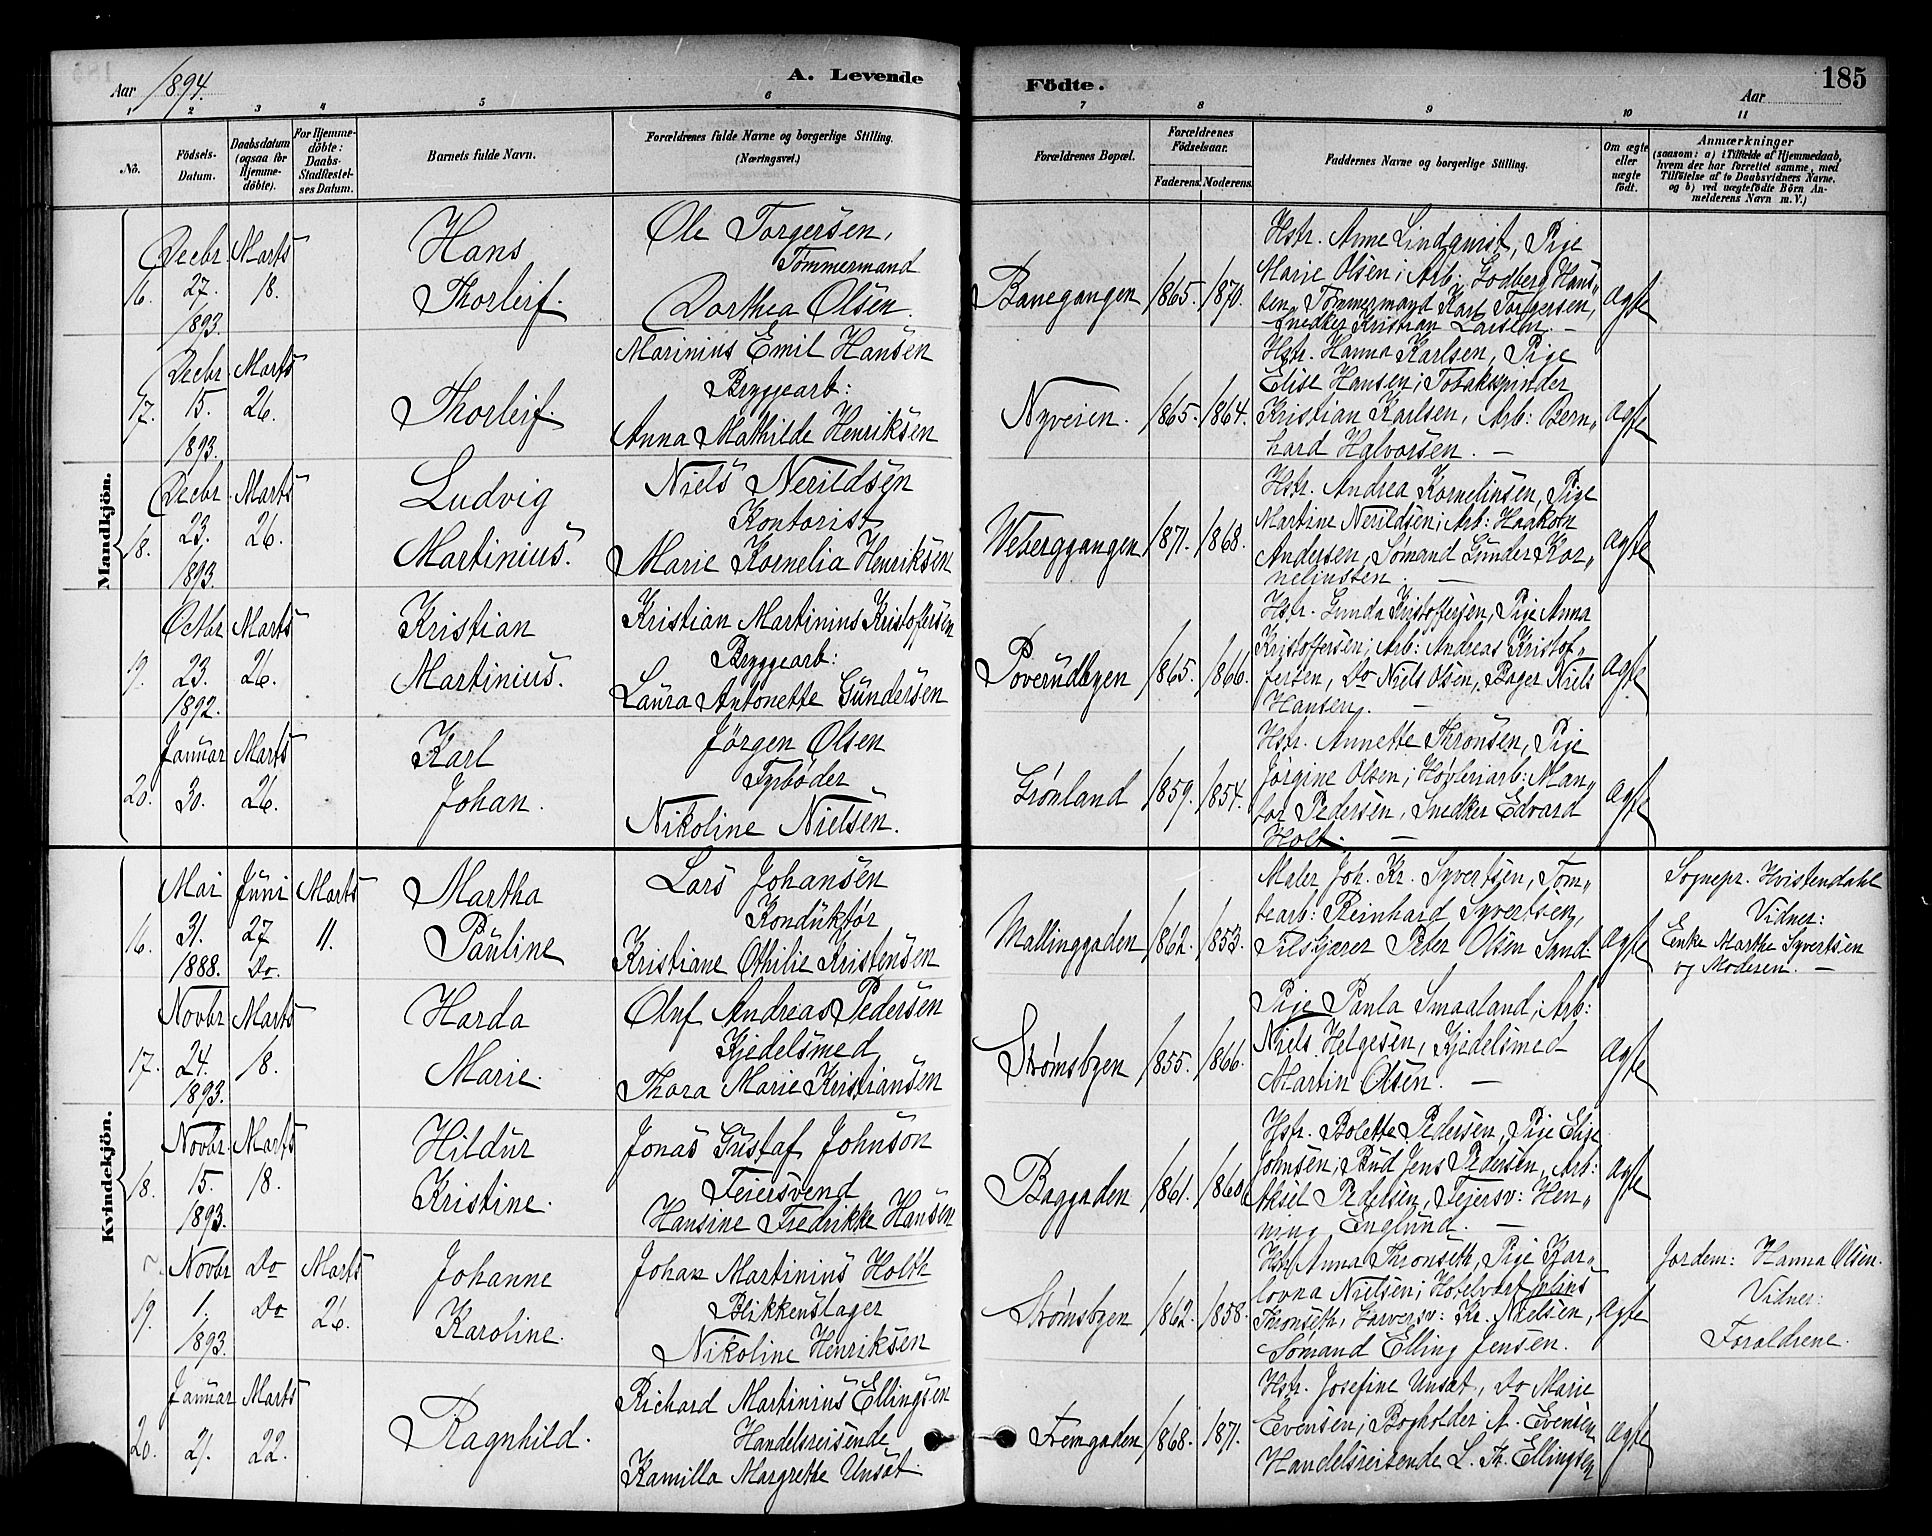 Aar 1894.
A. Levende
Födte.
Aar
185
1 2 3 4 5 6 7 8 9 10 11
No.
Födsels-Datum.
Daabsdatum (ogsaa for Hjemmedöbte).
For Hjemmedöbte: Daabs-Stadfæstelses Datum.
Barnets fulde Navn.
Forældrenes fulde Navne og borgerlige Stilling. (Næringsvei.)
Forældrenes Bopæl.
Forældrenes Födselsaar.
Faderens. Moderens.
Faddernes Navne og borgerlige Stilling.
Om ægte eller uægte födt.
Anmærkninger
(saasom: a) i Tilfælde af Hjemmedaab, hvem der har forrettet samme, med Tilföielse af to Daabsvidners Navne. og b) ved uægtefödte Börn Anmelderens Navn m. V.)
Mandkjön.
16. Decbr 27. 1893. Marts 18.
Hans
Thorleif.
Ole Torgersen,
Tømmermand
Dorthea Olsen.
Banegangen 1865. 1870.
Hstr. Anne Lindqvist, Pige
Marie Olsen; Arb: Godberg Hans„
sen, Tømmermand Karl Torgersen,
Snedker Kristian Larsen. —
ægte
17. Decbr 15. 1893. Marts 26.
Thorleif.
Marinius Emil Hansen
Bryggearb:
Anna Mathilde Henriksen
Nyveien. 1865. 1864.
Hstr. Hanna Karlsen, Pige
Elise Hansen; Tobakspinder
Kristian Karlsen, Arb: Bern„
hard Halvorsen. —
ægte
18. Decbr 23. 1893. Marts 26.
Ludvig
Martinius.
Niels Nerildsen
Kontorist
Marie Kornelia Henriksen
Weberggangen 1871. 1868.
Hstr. Andrea Korneliusen, Pige
Martine Nerildsen; Arb: Haakon
Andersen, Sømand Gunder Kor„
neliussen. —
ægte
19. Octbr 23. 1892. Marts 26.
Kristian
Martinius.
Kristian Martinius Kristoffersen
Bryggearb:
Laura Antonette Gundersen
Poverudbyen 1865. 1866.
Hstr. Gunda Kristoffersen, Pige Anna
Kristoffersen; Arb: Andreas Kristof„
fersen, Do Niels Olsen, Bager Niels
Hansen. —
ægte
20. Januar 30. Marts 26.
Karl
Johan.
Jörgen Olsen
Fyrbøder
Nikoline Nielsen.
Grønland 1859. 1854.
Hstr. Annette Thronsen, Pige
Jørgine Olsen; Høvleriarb: Man„
tor Pedersen, Snedker Edvard
Holt. —
ægte
Kvindekjön.
16. Mai 31. 1888. Juni 27 Do. Marts 11.
Martha
Pauline
Lars Johansen
Konduktør
Kristiane Othilie Kristensen
Mallinggaden 1862. 1853.
Maler Joh. Kr. Syvertsen, Tom„
tearb: Reinhard Syvertsen,
Tilskjærer Peter Olsen Sand
ægte
Sognepr. Hvistendahl
Vidner:
Enke Marthe Syvertsen
og Moderen. —
17. Novbr 24. 1893. Marts 18.
Harda
Marie.
Oluf Andreas Pedersen
Kjedelsmed
Thora Marie Kristiansen
Strømsbyen 1855. 1866.
Pige Paula Smaaland; Arb:
Niels Helgesen, Kjedelsmed
Martin Olsen. —
ægte
18. Novbr 15. 1893. Marts 18.
Hildur
Kristine.
Jonas Gustaf Johnson
Feiersvend
Hansine Fredrikke Hansen
Baggaden 1861. 1860.
Hstr. Bolette Pedersen, Pige Elise
Johnsen; Bud Jens Pedersen, Arb:
Aksel Pedersen, Fejersv: Hen„
ning Englund. —
ægte
19. Novbr 1. 1893. Do Do Marts 26.
Johanne
Karoline.
Johan Martinius Holth
Blikkenslager
Nikoline Henriksen
Strømsbyen 1862. 1858.
Hstr Anna Thronseth, Pige Kar„
lovna Nielsen; Hotelvært Julius
Thronseth, Garversv: Kr. Nielsen,
Sømand Elling Jensen.
ægte
Jordem: Hanna Olsen.
Vidner:
Forældrene.
20. Januar 21. Marts 22.
Ragnhild.
Richard Martinius Ellingsen
Handelsreisende
Kamilla Margrethe Unsat.
Fremgaden 1868. 1871.
Hstr. Josefine Unsat, Do Marie
Evensen; Bogholder A. Evensen
Handelsreisende L. Th. Ellingsen
ægte